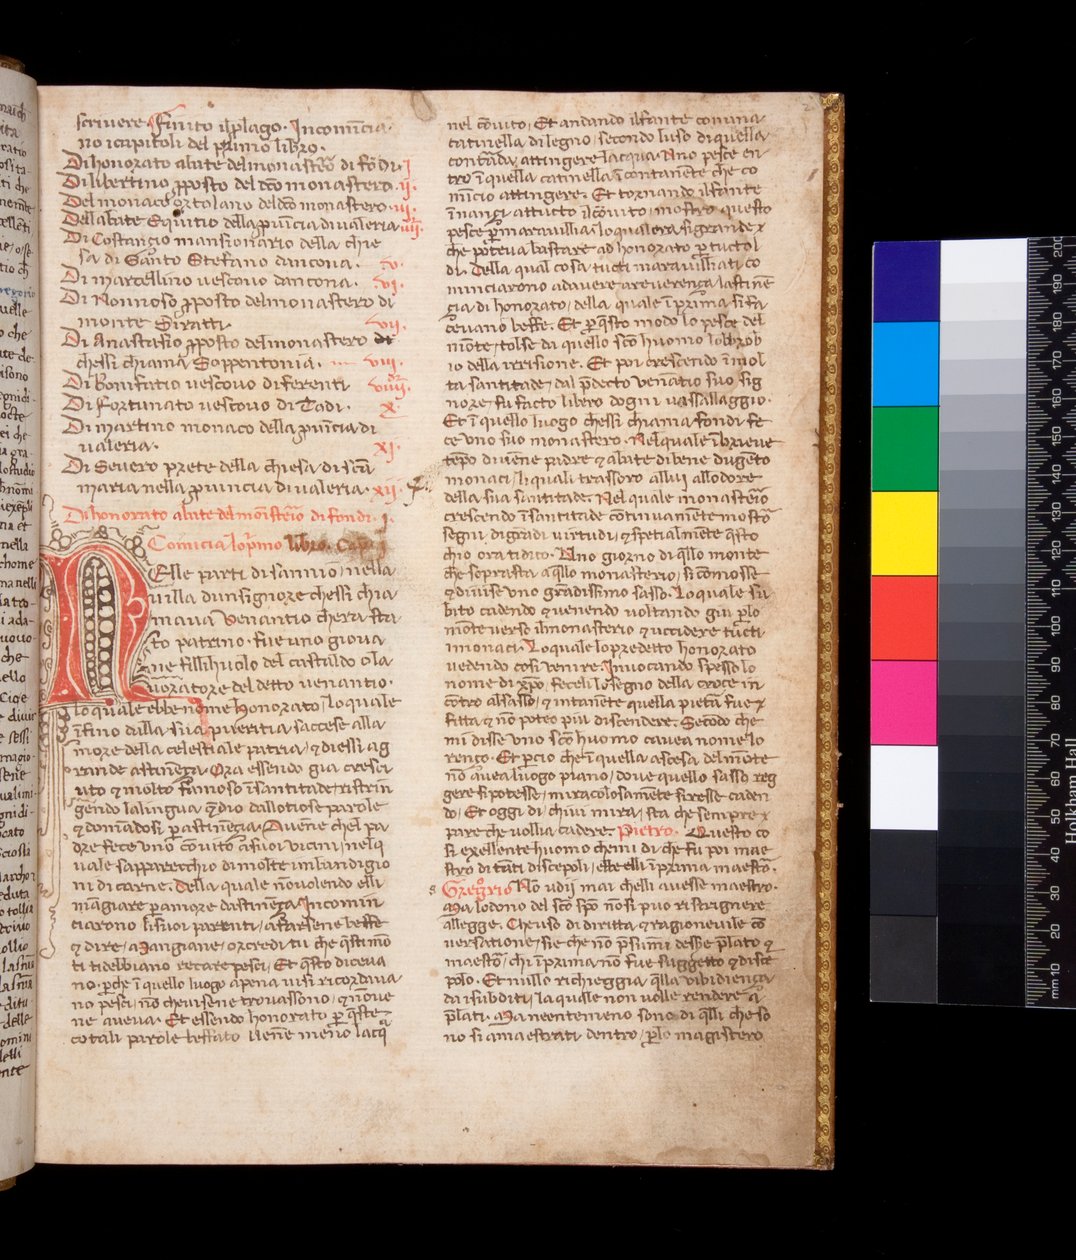 scriuere Finito il plago. Incomīcia
no i capitoli del primo libro.
Di honorato abate del monasterō di fōdi. I
Di libertino ꝓposto del dc̄o monastero. ii.
Del monaco ortolano del dc̄o monastero. iii.
Dell abate Equitio della ꝓuincia di ualeria iiii.
Di Costanzio mansionario della chie
sa di Santo Stefano dancona. v.
Di marcellino uescouo dancona. vi.
Di Nonnoso ꝓposto del monastero di
monte Siratti. vii.
Di Anastasio ꝓposto del monastero di
chessi chiama Soppentonia. viii.
Di bonifatio uescouo di ferenti viiii.
Di fortunato uescouo di Todi. x.
Di martino monaco della ꝓuīcia di
ualeria. xi.
Di Seuero prete della chiesa di scā
maria nella ꝓuincia di ualeria. xii.
Di honorato abate del monisterio di fondi. I.
Comīcia lo pͥmo libro. Cap
Nelle parti di sannio, nella
uilla dun signore chessi chia
maua Venantio chera sta
to patrino. fue uno gioua
ne fillihuolo del castaldo o la
uoratore del detto uenantio.
lo quale ebbe nome honorato, lo quale
īfino dalla sua pueritia saccese alla
more della celestiale patria, ⁊ diessi ag
rande astinēza. Ora essendo gia cresci
uto ⁊ molto famoso ī santitade ristrin
gēndo la lingua q̄dio dall otiose parole
⁊ domādosi ꝑ astinēzia. Auēne chel pa
dre fece uno cōuito a suoi uicini, nel q̄
uale sapparecchio di molte imbandigio
ni di carne. della quale nō uolendo elli
māgiare ꝑ amore dastinēza. Incomin
ciarono li suoi parenti, a farsene beffe
⁊ dire, Mangiane, or credi tu che q̄sti mō
ti ti debbiano recare pesci, Et q̄sto diceua
no. ꝑche ī quello luogo apena uisi ricordaua
no pesci, nō che uisene trouassono, ⁊ none
ne aueua. Et essendo honorato ꝑ q̄ste
cotali parole beffato uēne meno lacq̄
nel cōuito, Et andando il fante con una
catinella di legno, secondo luso di quella
contrada, attingere lacqua. Uno pesce en
tro ī quella catinella ī contanēte che co
mīcio attingere. Et tornando il fante
īnanzi attutto il cōuito, mostro questo
pesce ꝑ marauillia, lo quale era si grande ⁊
che poteua bastare ad honorato ꝑ tutto l
di. Della qual cosa tutti marauilliati co
minciarono ad auere a reuerenza lastinē
cia di honorato, della quale ī prima si fa
ceuano beffe. Et ꝑ q̄sto modo lo pesce del
mōte, tolse da quello scō huomo lobbrob
io della irrisione. Et poi crescendo ī mol
ta santitade, dal p̄decto uenatio suo sig
nore, fu facto libero dogni uassallaggio.
Et ī quello luogo chessi chiama fondi fe
ce uno suo monastero. Nel quale ī brieue
tēpo diuēne padre ⁊ abate di bene dugēto
monaci, li quali trassoro a llui allodore
della sua santitade, Nel quale monasterio
crescendo ī santitade cōtinuamēte mostro
segni, di gradi uirtudi, ⁊ spetialmēte q̄sto
chio ora ti dico. Uno giorno di q̄llo monte
che soprasta a q̄llo monasterio, si cōmosse
⁊ diuise uno grādissimo sasso. Lo quale su
bito cadendo ⁊ uenendo uoltando giu ꝑ lo
mōte uerso il monasterio ⁊ uccidere tucti
i monaci. Lo quale lo predetto honorato
uedendo cosi uenire, Inuocando spesso lo
nome di xp̄o, feceli lo segno della croce in
cōtro al sasso, ⁊ intanēte quella pietra fue ⁊
fitta ⁊ nō poteo piu discendere. Secōdo che
mi disse uno scō huomo cauea nome lo
renzo. Et ꝑcio che ī quella ascesa del mōte
nō auea luogo piano, doue quello sasso reg
gere si potesse, miracolosamēte si resse caden
do, Et oggi di chiui mira, sta che sempre ⁊
pare che uollia cadere. Pietro. Questo co
si exellente huomo chemi di che fu poi mae
stro di tāti discepoli, ebbe elli īprima maestō.
Gregorio No udij mai chelli auesse maestro.
Ma lo dono del scō spō nō si puo ristrignere
a llegge. Che uso di diritta ⁊ ragioneuile cō
uersatione, sie che nō p̄sumi desse p̄lato q̄
maestō, chi ī prima nō fue suggetto ⁊ disce
polo. Et nullo richieggia q̄lla obidienza
da i subditi, la quale non uolle rendere a
p̄lati. Ma neentemeno sono di q̄lli che so
no si amaestrati dentro, ꝑlo magistero